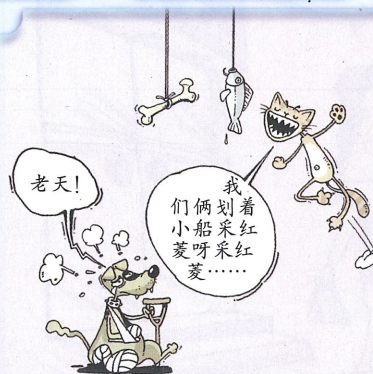 老天！
我
们俩划着
小船采红
菱呀采红
菱……